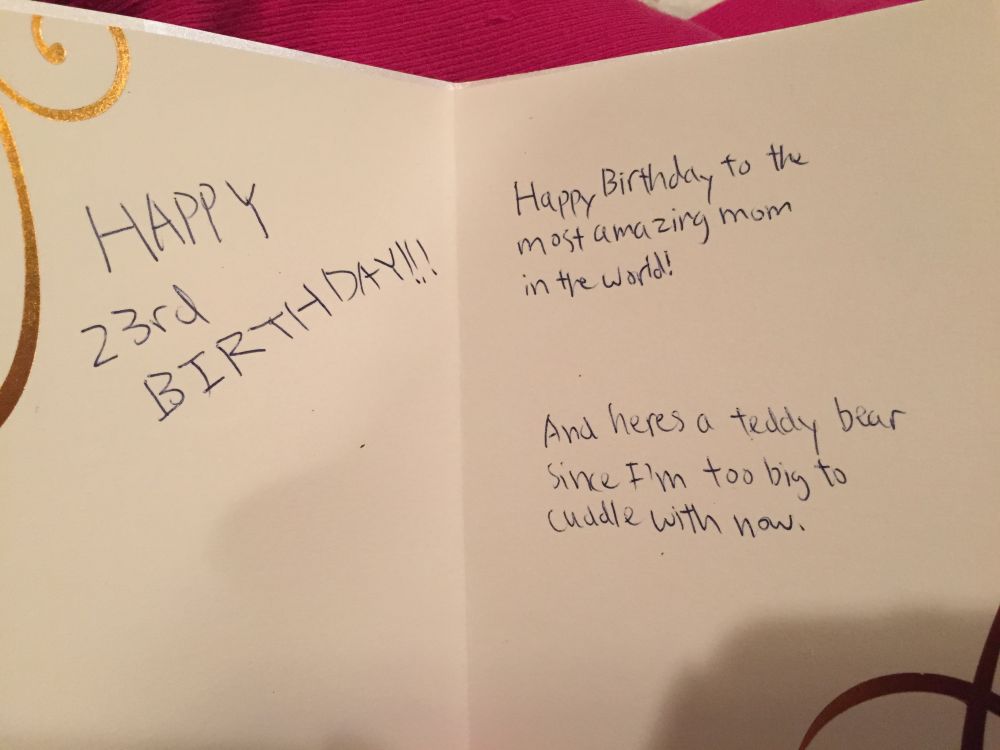 HAPPY
23rd
BIRTHDAY!!!
Happy Birthday to the
most amazing mom
in the world!
And heres a teddy bear
since I'm too big to
cuddle with now.